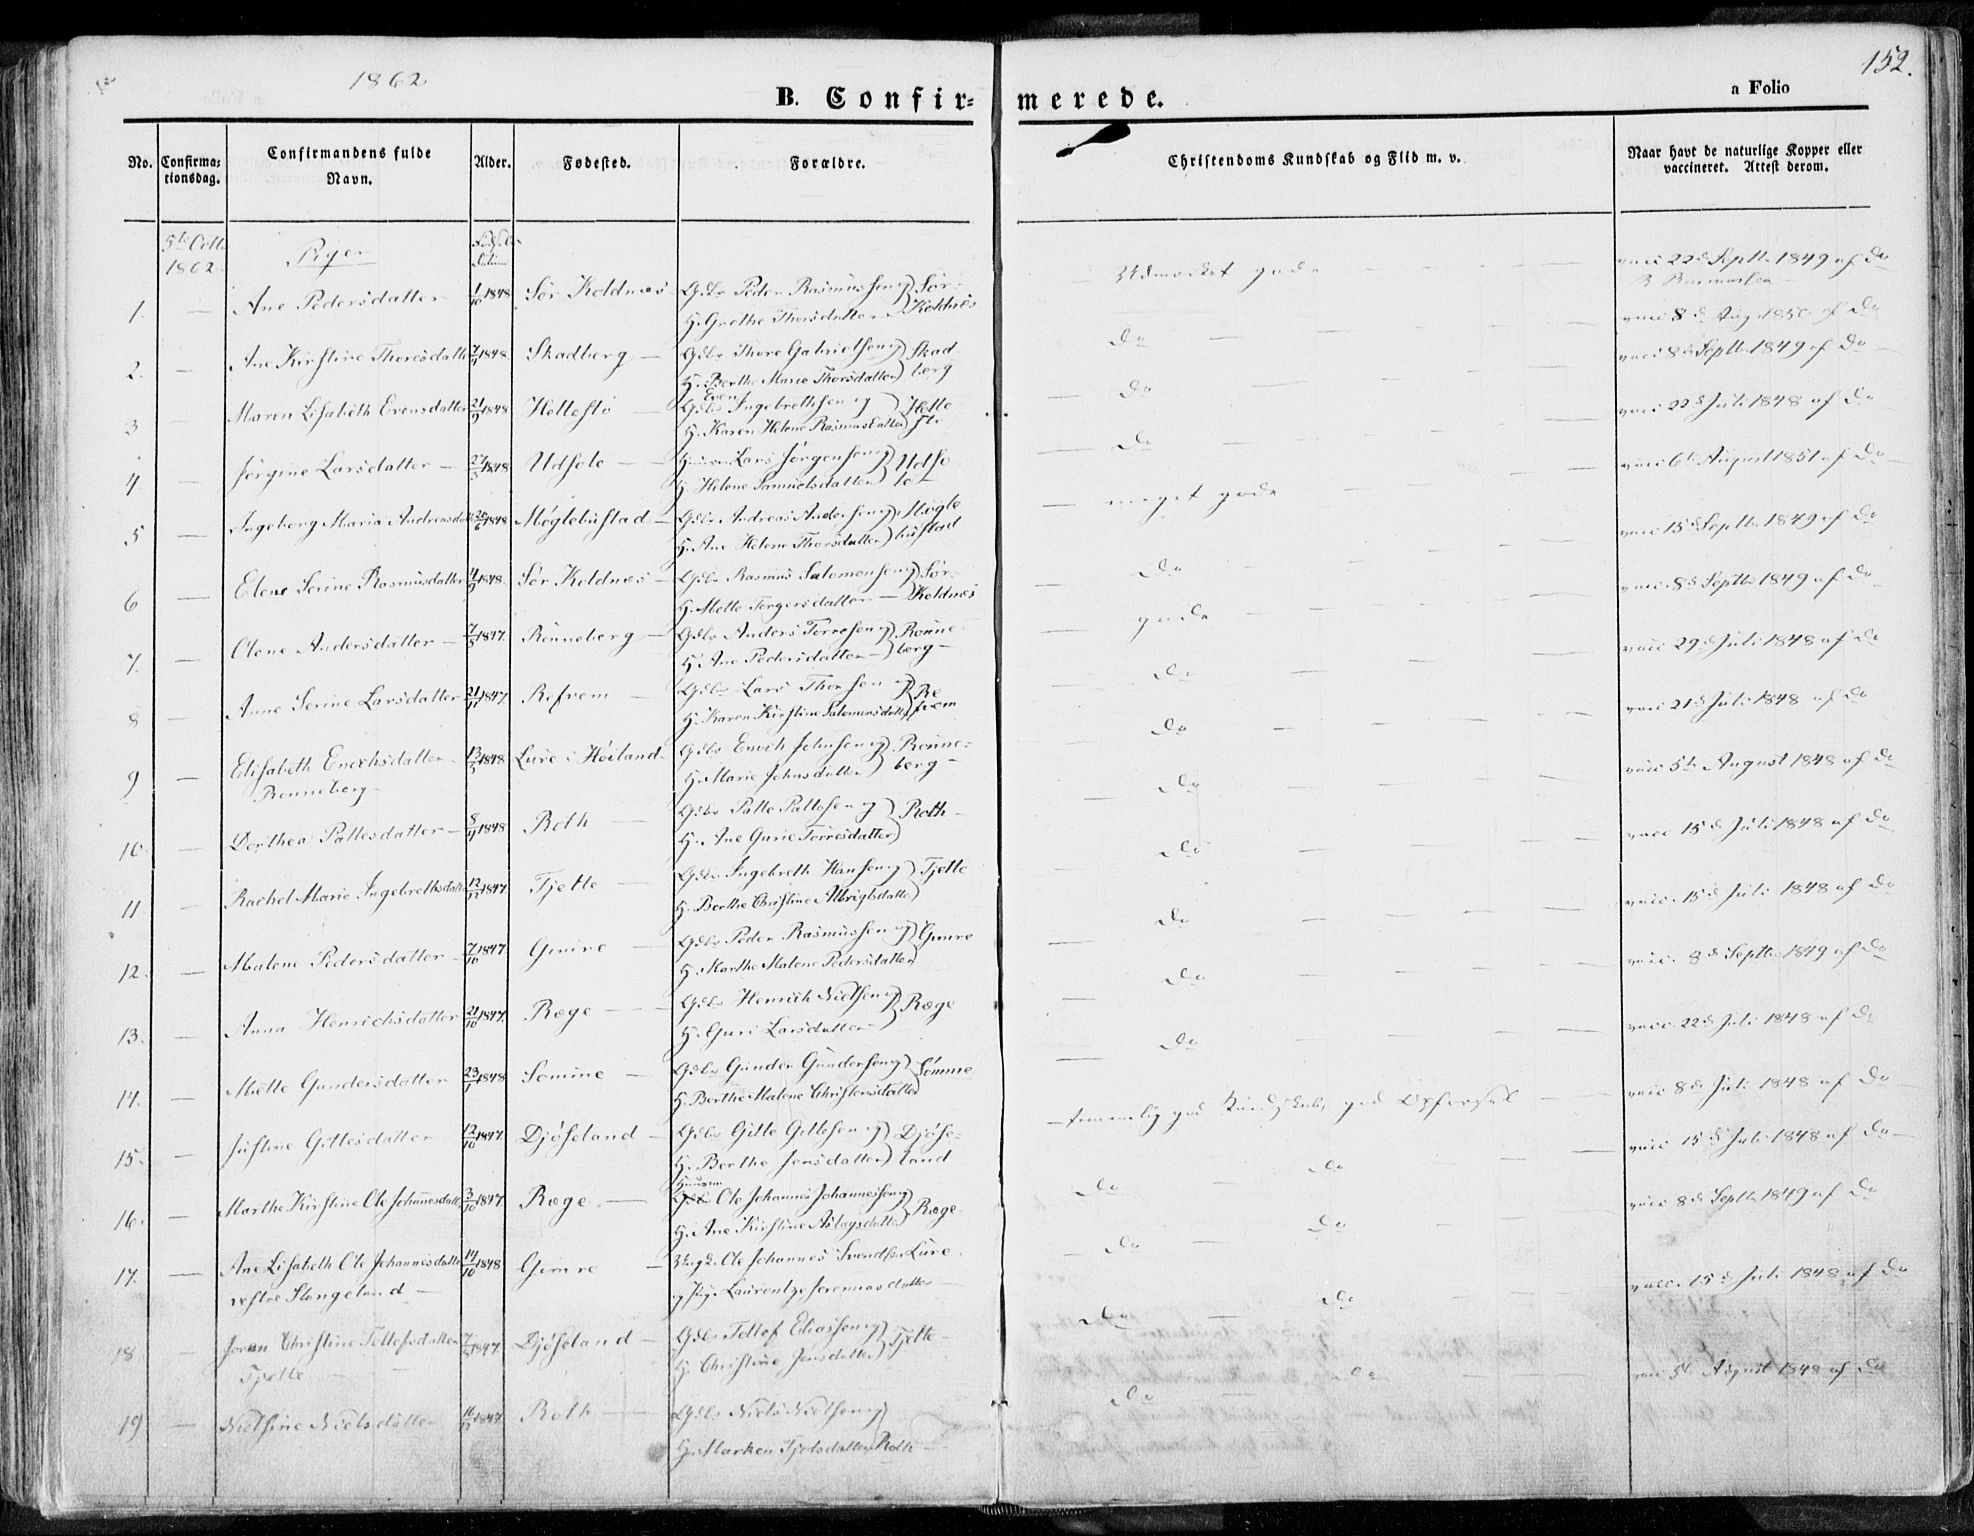 1862
152.
B. Confirmerede.
a Folio
No.
Confirmationsdag.
Confirmandens fulde Navn.
Alder.
Fødested.
Forældre.
Christendoms Kundskab og Flid m. v.
Naar havt de naturlige Kopper eller vaccineret. Attest derom.
5te Octb. 1862
Piger
1. — Ane Pedersdatter 1/10 1848 Sør Koldnæs Gdbr Peder Rasmussen og H. Grethe Thorsdatter Sør-Koldnæs — Udmærket gode vacc 22d Septb. 1849 af Do
2. — Ane Kirstine Thoresdatter 1848 Skadberg — Gdbr Thore Gabrielsen og H. Berthe Marie Thorsdatter Skadberg Do — vacc 8d Aug 1850 af Do
3 — Maren Lisabeth Evensdatter 21/9 1848 Hellestø — Gdbr Even Ingebrethsen og H. Karen Helene Rasmusdatter Hellestø — Do vacc 8d Septb. 1849 af Do
4 — Jørgine Larsdatter — 1848 Udsole — Huusm. Lars Jørgensen og H. Helene Samuelsdatter Udsole — Do — vacc 22d Juli 1848 af Do
5 — Ingeborg Maria Andreasdatter 1848 Møglebustad — Gdbr Andreas Andersen og H. Ane Helene Thorsdatter Møglebustad — meget gode vacc 6te August 1851 af Do
6 — Elene Serine Rasmusdatter 4/9 1848. Sør Koldnæs — Gdbr Rasmus Salomonsen og H. Mette Torgersdatter — Sør-Koldnæs — Do vacc 15d Septb. 1849 af Do
7. — Olene Andersdatter — 1847. Rønneberg — Gdbr Anders Torresen og H. Ane Pedersdatter — Rønneberg — — gode vacc. 8d Septb 1849 af Do
8 — Anne Serine Larsdatter 1847 Refrem — Gdbr Lars Thorsen og H. Karen Kirstine Salomonsdatter Refrem — Do vacc 29d Juli 1848 af Do
9 — Elisabeth Enochsdatter Rønneberg — 13/5 1848 Lure i Høiland Gdbr Enoch Johnsen og H. Marie Johnsdatter Rønneberg — — Do — vacc 21d Juli 1848 af Do
10. — Dorthea Pallesdatter — 1848 Roth — Gdbr Palle Pallesen og H. Ane Gurie Torresdatter Roth — — Do vacc 5te August 1848 af Do
11 — Rachel Marie Ingebrethsdatter 1847 Tjelte — Gdbr Ingebreth Hansen og H. Berthe Christine Albrigtsdatter Tjelte — Do vacc 15d Juli 1848 af Do
12. — Malene Pedersdatter 7/10 1847. Gimre — Gdbr Peder Rasmussen og H. Marthe Malene Pedersdatter Gimre — Do vacc. 15d Juli 1848 af Do
13. — Anna Henrichsdatter 21/10 1847. Ræge — Gdbr Henrich Nielsen og H. Guri Larsdatter — Ræge — Do vacc. 8d Septb. 1849 af Do
14. — Mette Gundersdatter 23/1 1848 Sømme — Gdbr Gunder Gundersen og H. Berthe Malene Christensdatter Sømme — Do vacc. 22d Juli 1848 af Do
15. — Justine Gittesdatter 12/10 1847. Djøseland — Gdbr Gitle Gitlesen og H. Berthe Jensdatter Djøseland — temmelig god Kundskab, god Opførsel vacc 8d Juli 1848 af Do
16. — Marthe Kirstine Ole Johannesdatter 3/10 1847. Ræge — Huusm. Ole Johannes Johannessen og H. Ane Kirstine Aslagsdatter Ræge — Do Do vacc 15d Juli 1848 af Do —
17. — Ane Lisabeth Ole Johannesdatter vestre Stangeland — 14/10 1848 Gimre — Ung K. Ole Johannes Svends. Lure og Pige Laurentze Jeremiasdatter — Do — Do vacc 8d Septb. 1849 af Do
18 — Joren Christine Tollefsdatter Tjelte — 1847. Djøseland — Gdbr Tollef Eliassen og H. Christine Jensdatter Tjelte — Do — Do vacc. 15d Juli 1848 af Do
19 — Nielsine Nielsdatter 1847 Roth — Gdbr Niels Nielsen og H. Marken Tjølsdatter Roth — Do — Do vacc 5te August 1848 af Do